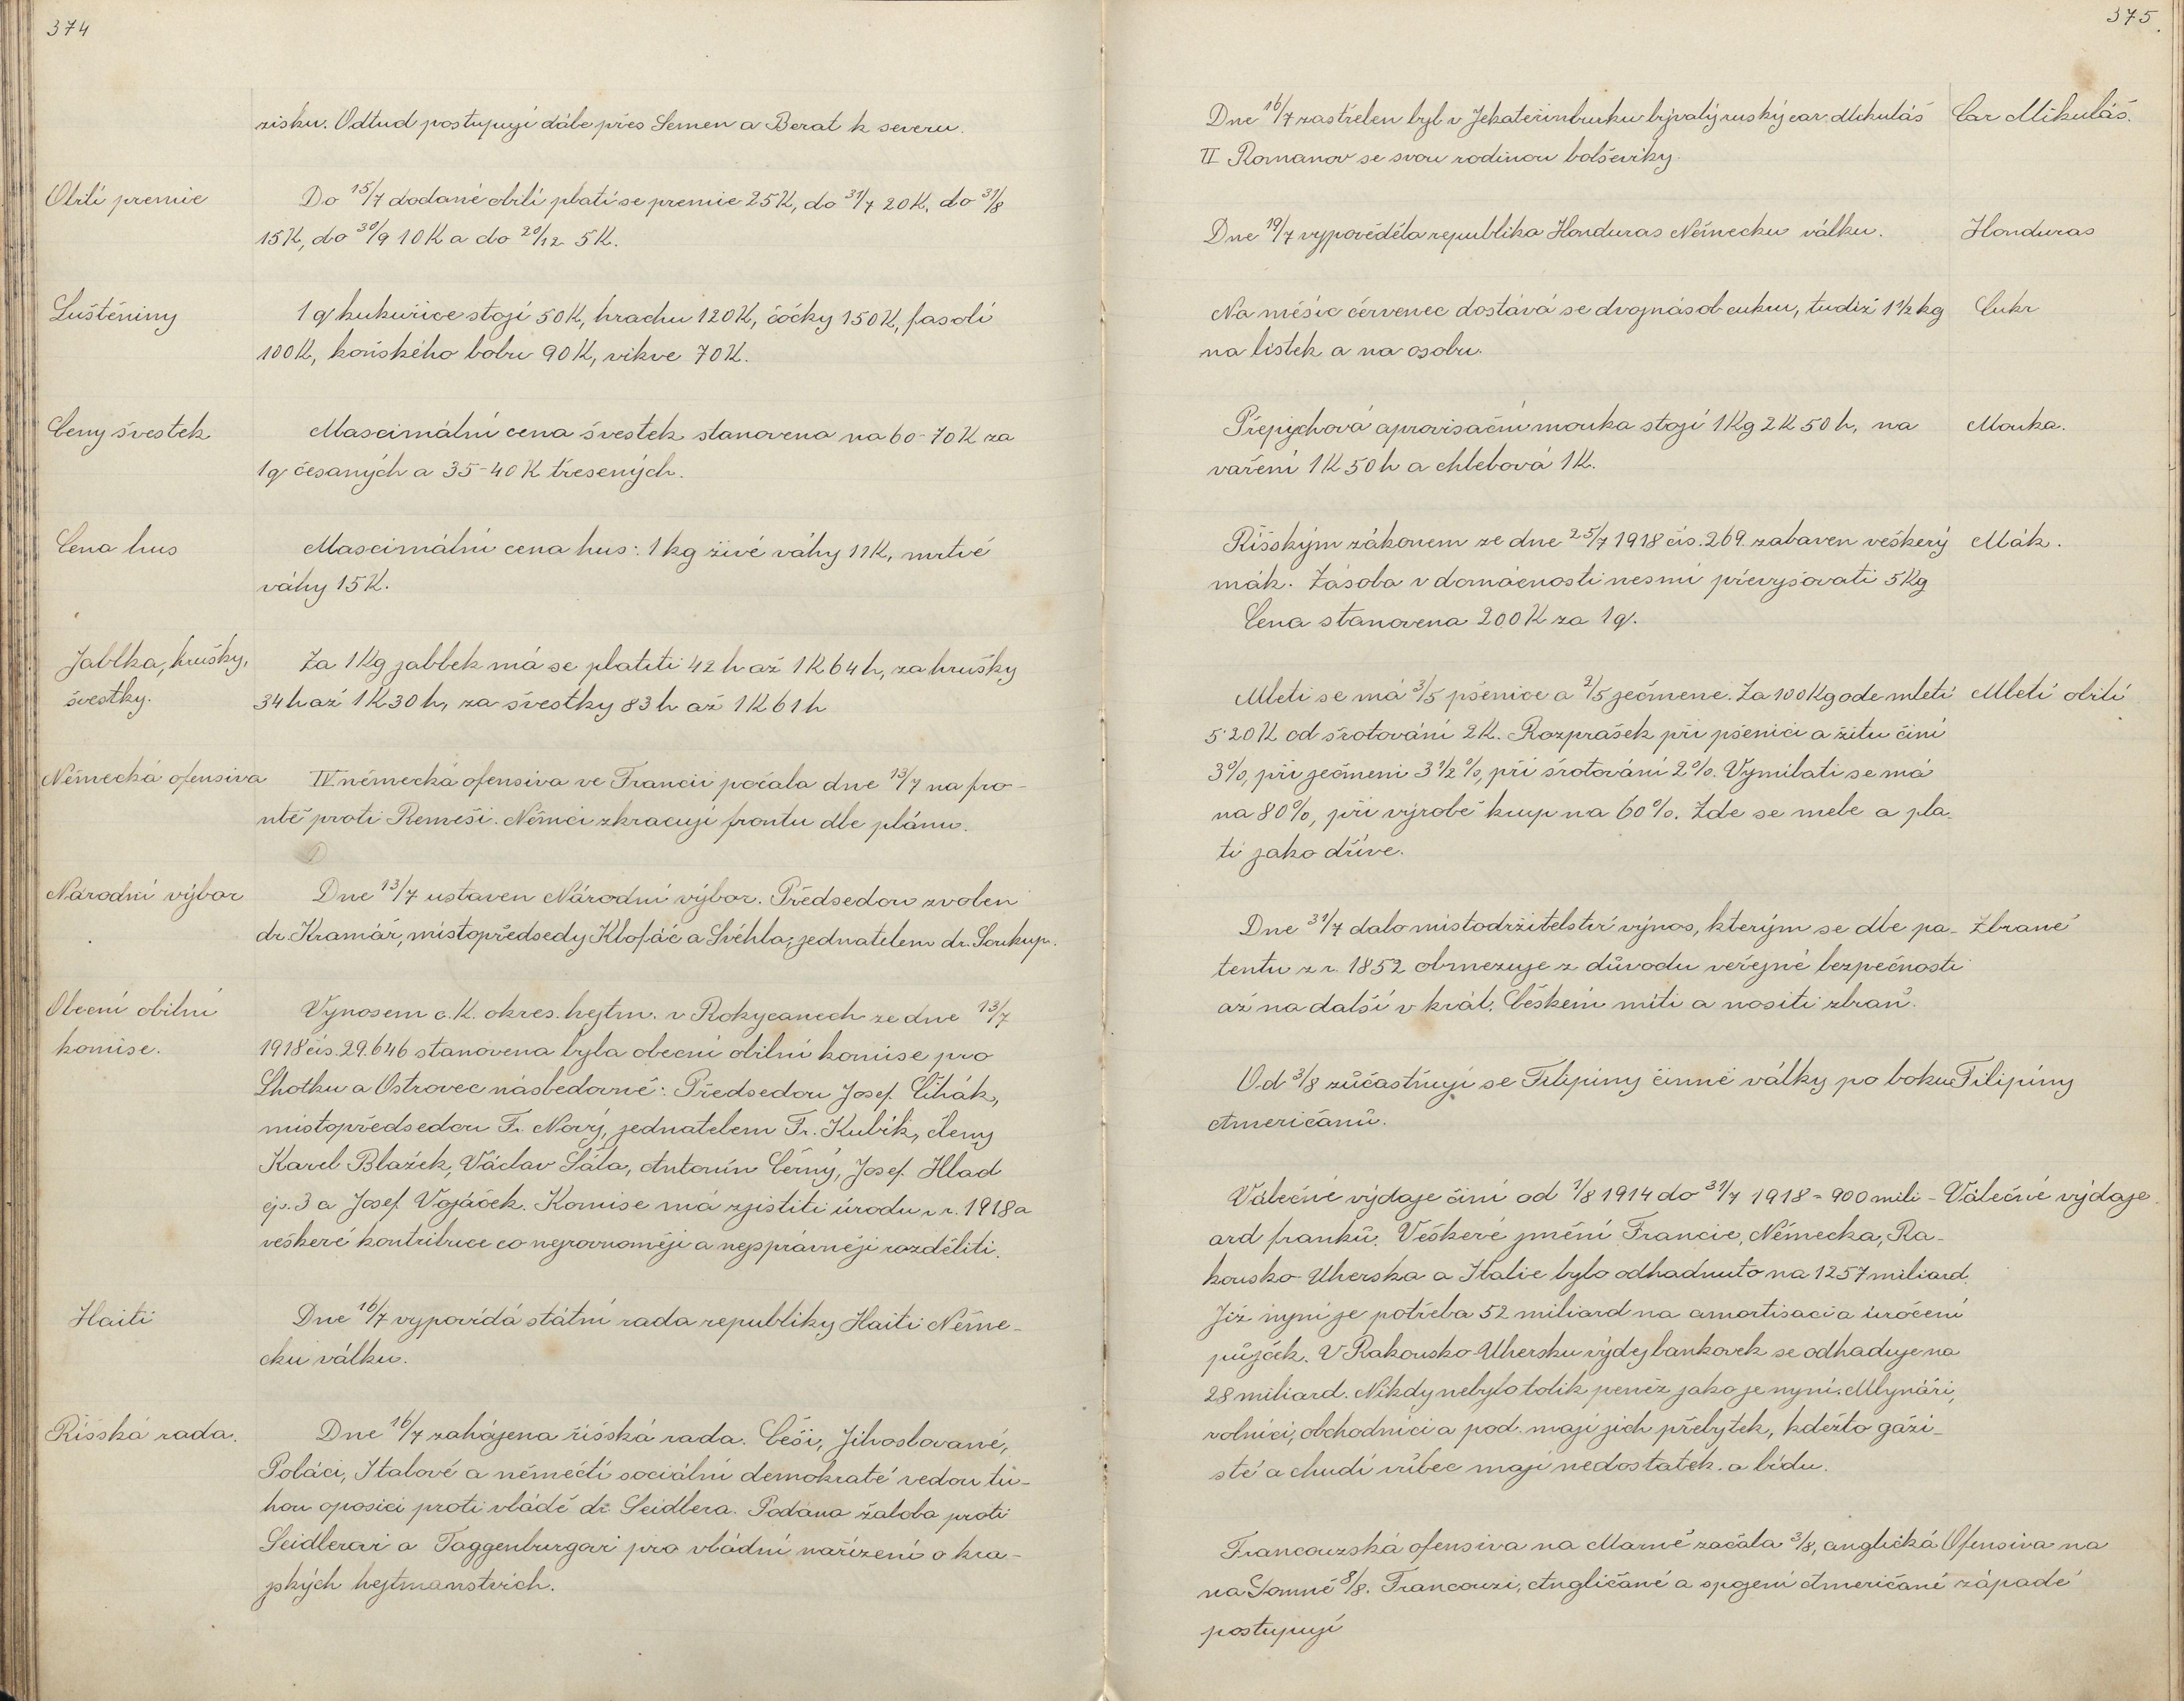 374
zisku. Odtud postupují dále přes Semen a Berat k severu.
Obilí premie
Do 15/7 dodané obilí platí se premie 25K, do 31/7 20K, do 31/8
15K, do 30/9 10K a do 20/12 5K.
Luštěniny
1q kukuřice stojí 50K, hrachu 120K, čočky 150K, fasolí
100K, koňského bobu 90K, vikve 70K.
Ceny švestek
Maximální cena švestek stanovena na 60-70K za
1q česaných a 35-40K třesených.
Cena hus
Maximální cena hus: 1kg živé váhy 11K, mrtvé
váhy 15K.
Jablka, hrušky,
švestky.
Za 1Kg jablek má se platiti 42h až 1K64h, za hrušky
34h až 1K30h, za švestky 83h až 1K61h
Německá ofensiva
IV. německá ofensiva ve Francii počala dne 13/7 na fro-
ntě proti Remeši. Němci zkracují frontu dle plánu.
Národní výbor
Dne 13/7 ustaven Národní výbor. Předsedou zvolen
dr. Kramář, místopředsedy Klofáč a Švéhla, jednatelem dr. Soukup.
Obecní obilní
komise.
Výnosem c.K. okres. hejtm. v Rokycanech ze dne 13/7
1918 čís. 29.646 stanovena byla obecní obilní komise pro
Lhotku a Ostrovec násbedovně: Předsedou Josef Čihák,
místopředsedou Fr. Nový, jednatelem Fr. Kubík, členy
Karel Blažek, Václav Šála, Antonín Černý, Josef Hlad
čp. 3 a Josef Vojáček. Komise má zjistiti úrodu v r. 1918 a
veškeré kontribuce co nejrovnoměji a nejsprávněji rozděliti.
Haiti
Dne 16/7 vypovídá státní rada republiky Haiti Něme-
cku válku.
Říšská rada.
Dne 16/7 zahájena říšská rada. Češi, Jihoslované,
Poláci, Italové a němečtí sociální demokraté vedou tu-
hou oposici proti vládě dr. Seidlera. Podána žaloba proti
Seidlerovi a Toggenburgovi pro vládní nařízení o kra-
jských hejtmanstvích.
375.
Dne 16/7 zastřelen byl v Jekateřinburku bývalý ruský car Mikuláš
II Romanov se svou rodinou bolševiky.
Car Mikuláš.
Dne 19/7 vypověděla republika Honduras Německu válku.
Honduras
Na měsíc červenec dostává se dvojnásob cukru, tudíž 1 1/2 kg
na lístek a na osobu.
Cukr
Přepychová aprovisační mouka stojí 1Kg 2K 50h, na
vaření 1K 50h a chlebová 1K.
Mouka.
Říšským zákonem ze dne 25/7 1918 čís. 269. zabaven veškerý
mák. Zásoba v domácnosti nesmí převyšovati 5Kg
Cena stanovena 200K za 1q.
Mák.
Mleti se má 3/5 pšenice a 2/5 ječmene. Za 100Kg ode mletí
5·20K od šrotování 2K. Rozprašek při pšenici a žitu činí
3%, při ječmeni 3 1/2%, při šrotování 2%. Vymílati se má
na 80%, při výrobě krup na 60%. Zde se mele a pla-
tí jako dříve.
Mletí obilí
Dne 31/7 dalo místodržitelství výnos, kterým se dle pa-
tentu z r. 1852 obmezuje z důvodu veřejné bezpečnosti
až na další v král. Českém míti a nositi zbraň.
Zbraně
Od 3/8 zúčastňují se Filipiny činně války po boku
Američanů.
Filipiny
Válečné výdaje činí od 1/8 1914 do 31/7 1918 = 900 mili-
ard franků. Veškeré jmění Francie, Německa, Ra-
kousko-Uherska a Italie bylo odhadnuto na 1257 miliard.
Již nyní je potřeba 52 miliard na amortisaci a úročení
půjček. V Rakousko-Uhersku výdej bankovek se odhaduje na
28 miliard. Nikdy nebylo tolik peněz jako je nyní. Mlynáři,
rolníci, obchodníci a pod. mají jich přebytek, kdežto gáži-
sté a chudí vůbec mají nedostatek a bídu.
Válečné výdaje
Francouzská ofensiva na Marně začala 3/8, anglická
na Sommě 8/8. Francouzi, Angličané a spojení Američané
postupují
Ofensiva na
západě